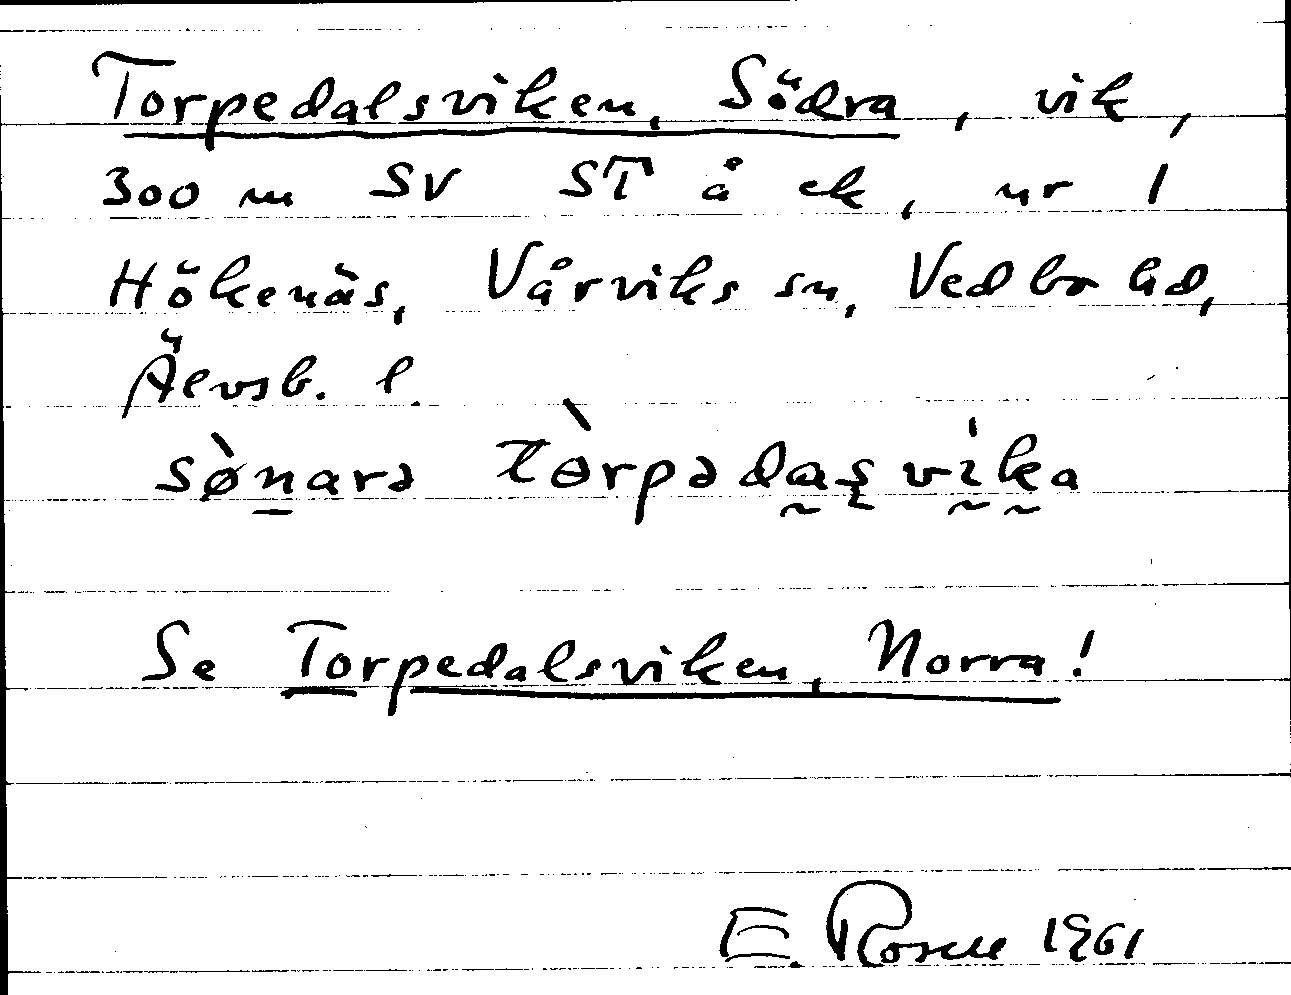 Torpedalsviken, Södra, vik,
300 m SV ST å ek, nr 1
Hökenäs, Vårviks sn, Vedbo hd,
Älvsb. l.
sø̀n̲arə tɵ̀rpədas̨vika
Se Torpedalsviken, Norra!
E. Rosell 1961